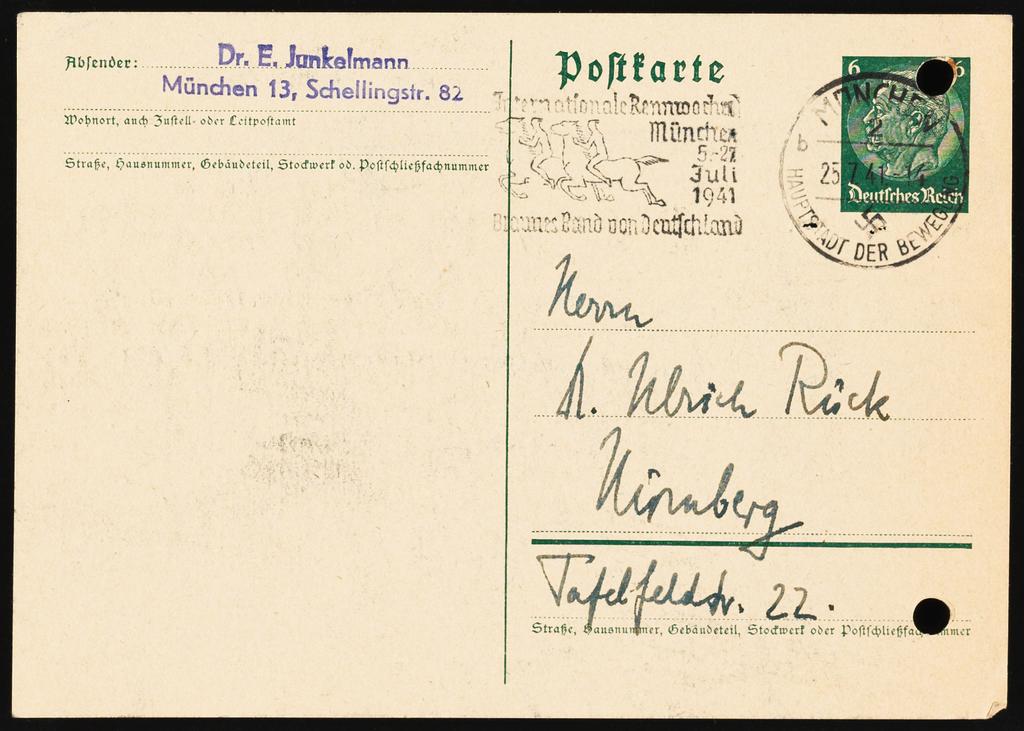 Absender:
Dr. E. Junkelmann
München 13, Schellingstr. 82
Wohnort, auch Zustell- oder Leitpostamt
Straße, Hausnummer, Gebäudeteil, Stockwerk od. Postschließfachnummer
Postkarte
Internationale Rennwochen
München
5.-27.
Juli
1941
Braunes Band von Deutschland
MÜNCHEN
2
b
25.7.41-14
HAUPTSTADT DER BEWEGUNG
6 6
Deutsches Reich
Herrn
Dr. Ulrich Rück
Nürnberg
Tafelfeldstr. 22.
Straße, Hausnummer, Gebäudeteil, Stockwerk oder Postschließfachnummer